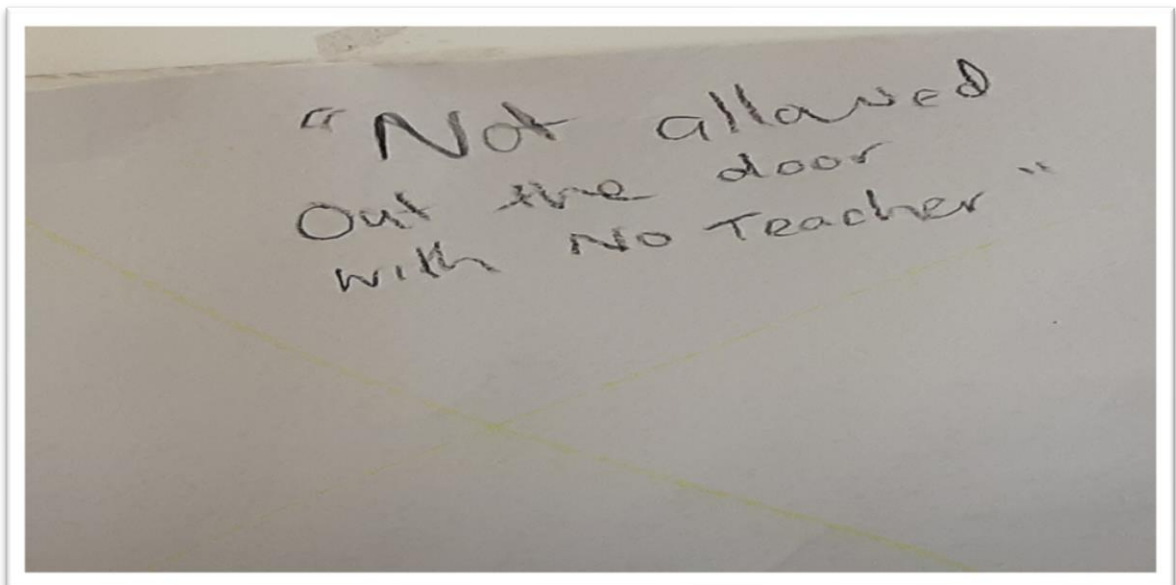 "Not allowed
Out the door
with No Teacher"